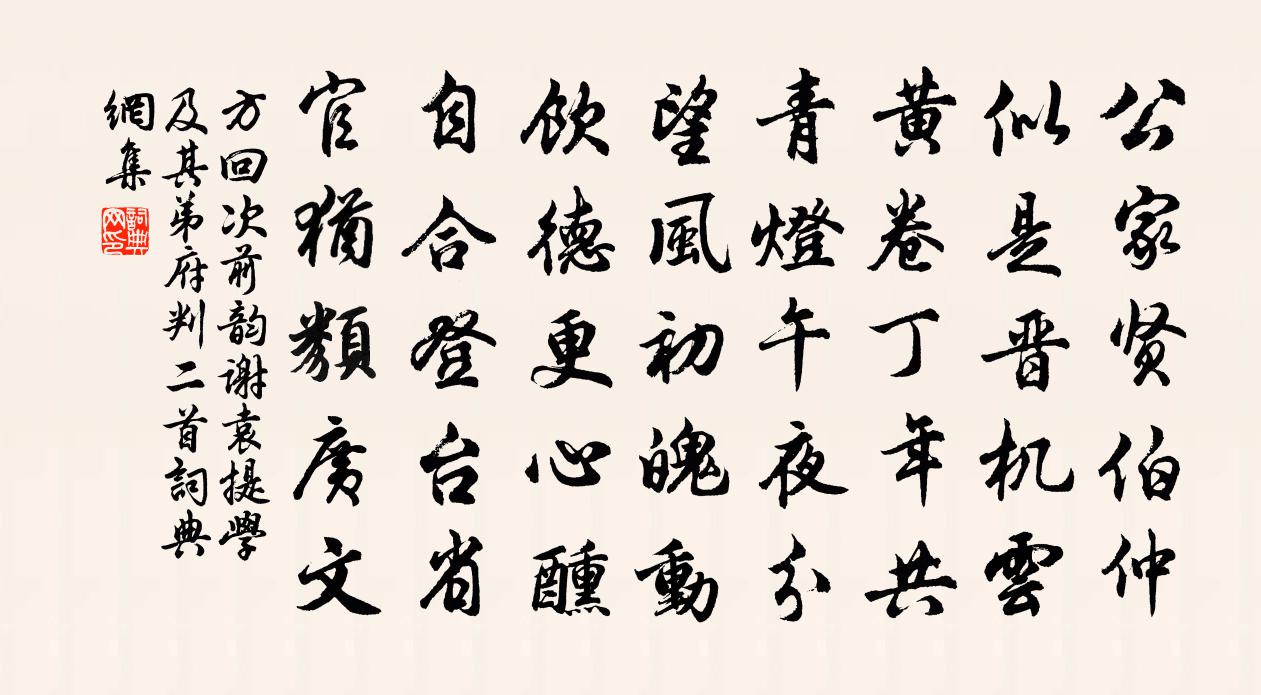 公家贤伯仲
似是晋机雲
黄卷丁年共
青燈午夜分
望風初魄動
飲德更心醺
自合登台省
官猶類廣文
方回次前韵谢袁提學
及其弟府判二首詞典
網集
詞典网印